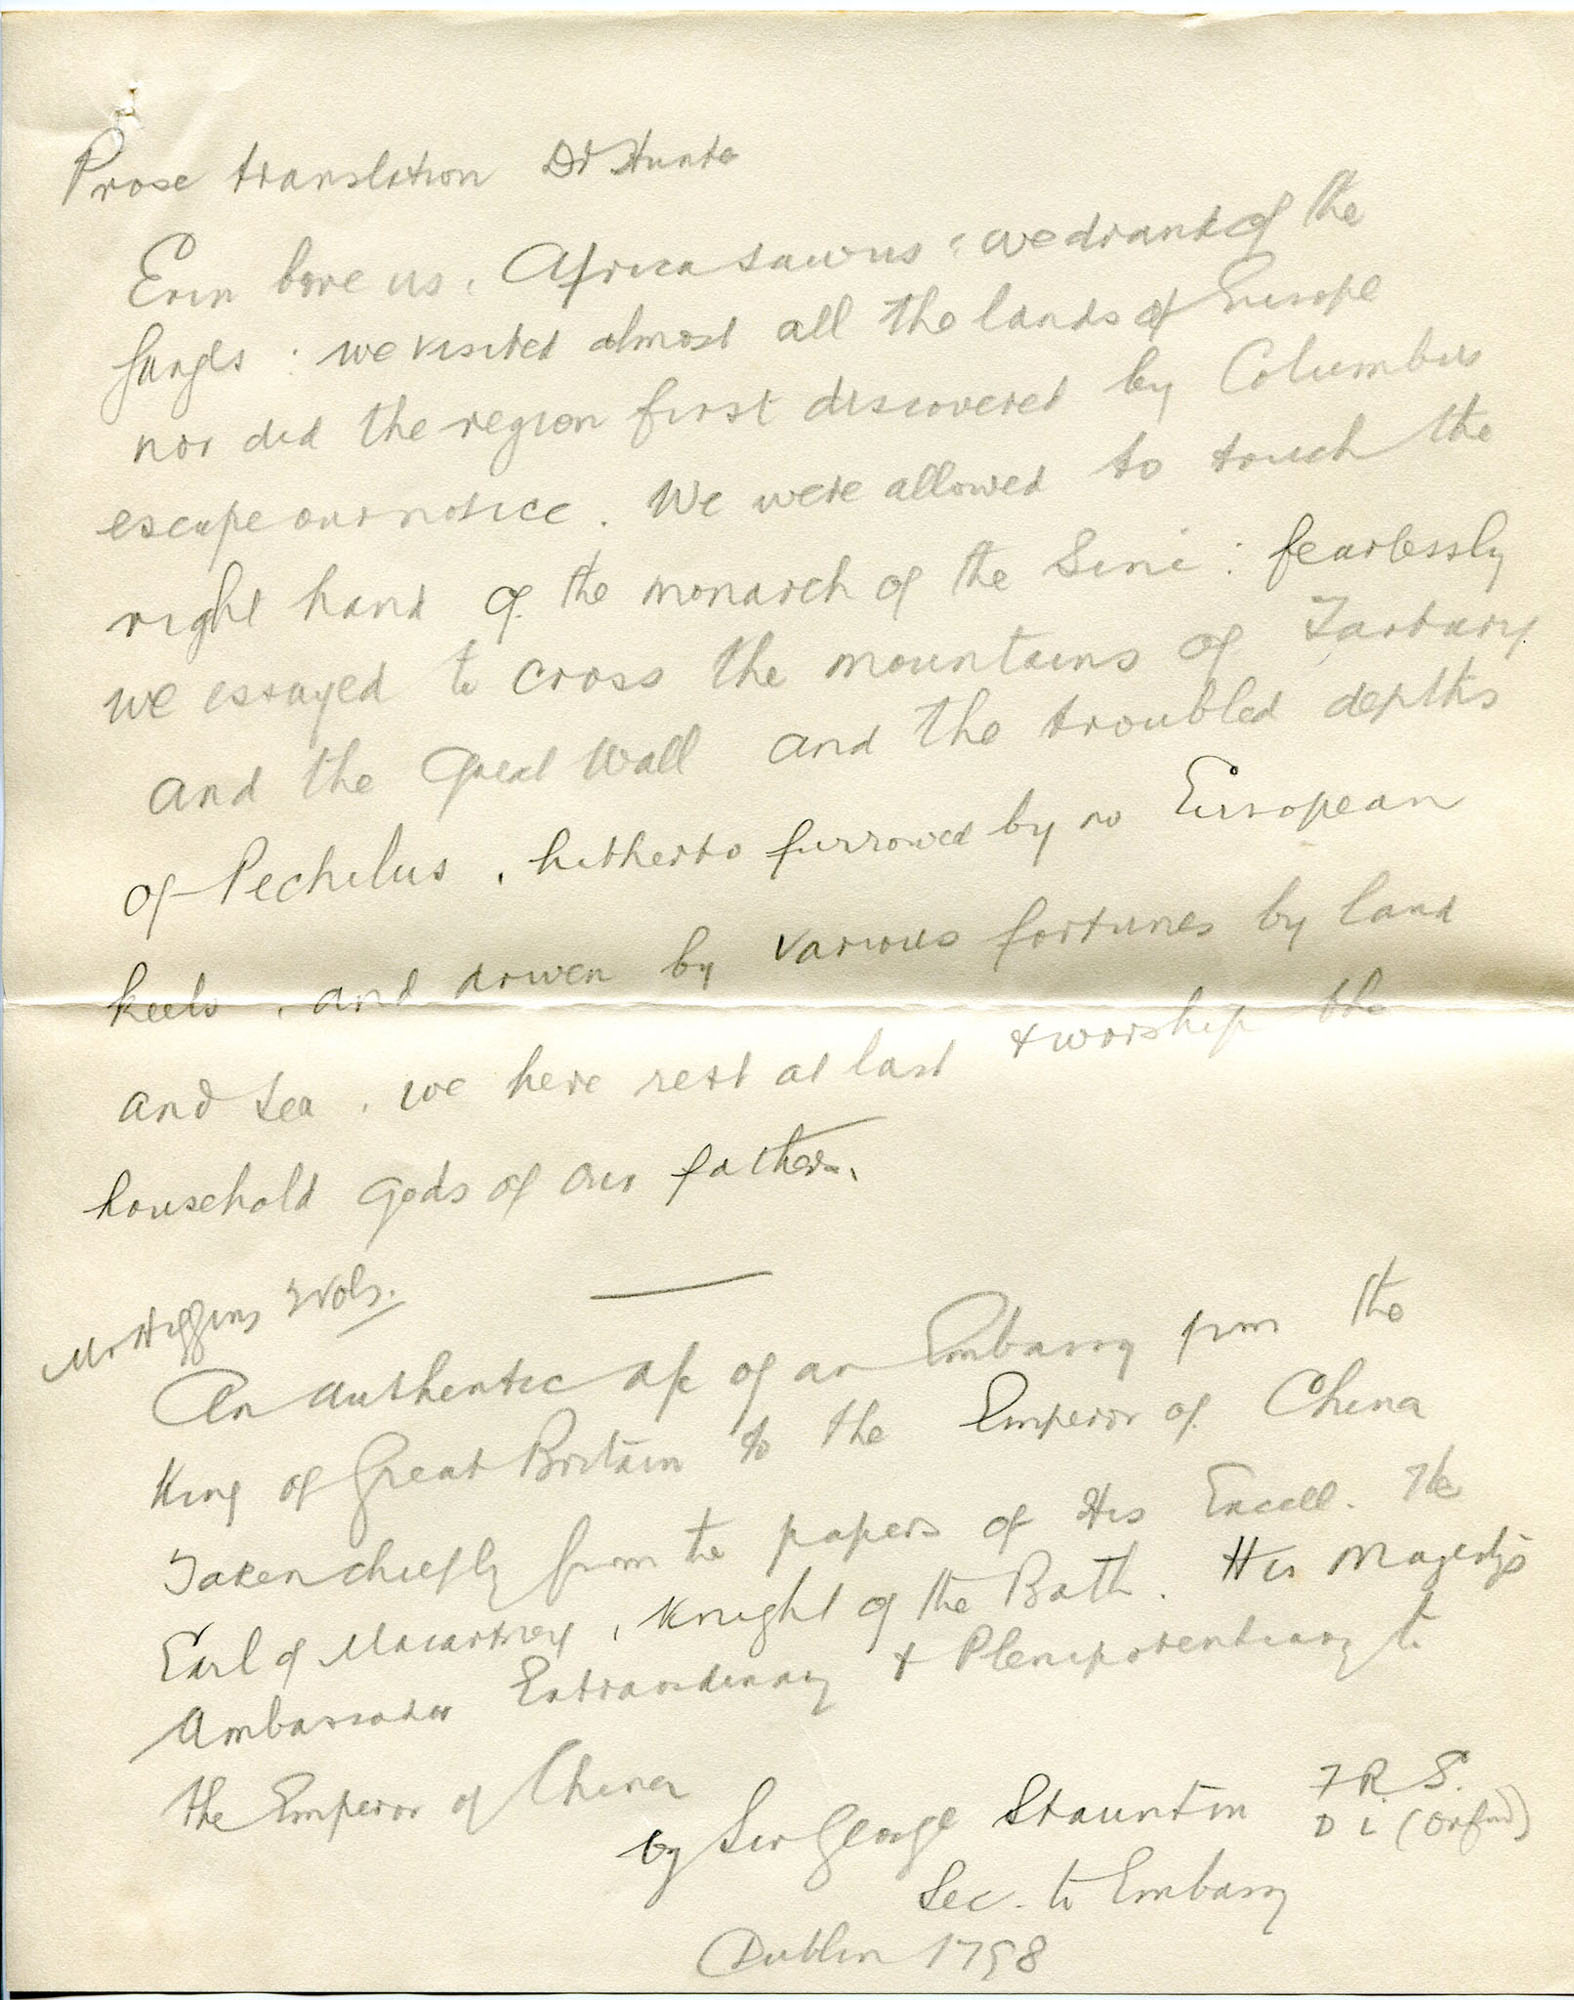 Prose translation Dr Hunter
Erin bore us, Africa saw us : we drank of the
Ganges : we visited almost all the lands of Europe
nor did the region first discovered by Columbus
escape our notice. We were allowed to touch the
right hand of the monarch of the Sini : fearlessly
we essayed to cross the mountains of Tartary
and the Great Wall and the troubled depths
of Pechilus, hitherto furrowed by no European
keels, and driven by various fortunes by land
and sea, we here rest at last & worship the
household gods of our fathers.
Mr Higgins 2 Vols.
An authentic a/c of an Embassy from the
King of Great Britain to the Emperor of China
Taken chiefly from the papers of His Excell. The
Earl of Macartney, Knight of the Bath. His Majesty's
Ambassador Extraordinary & Plenipotentiary to
the Emperor of China
by Sir George Staunton F R. S.
D L (Oxford)
Sec. to Embassy
Dublin 1798